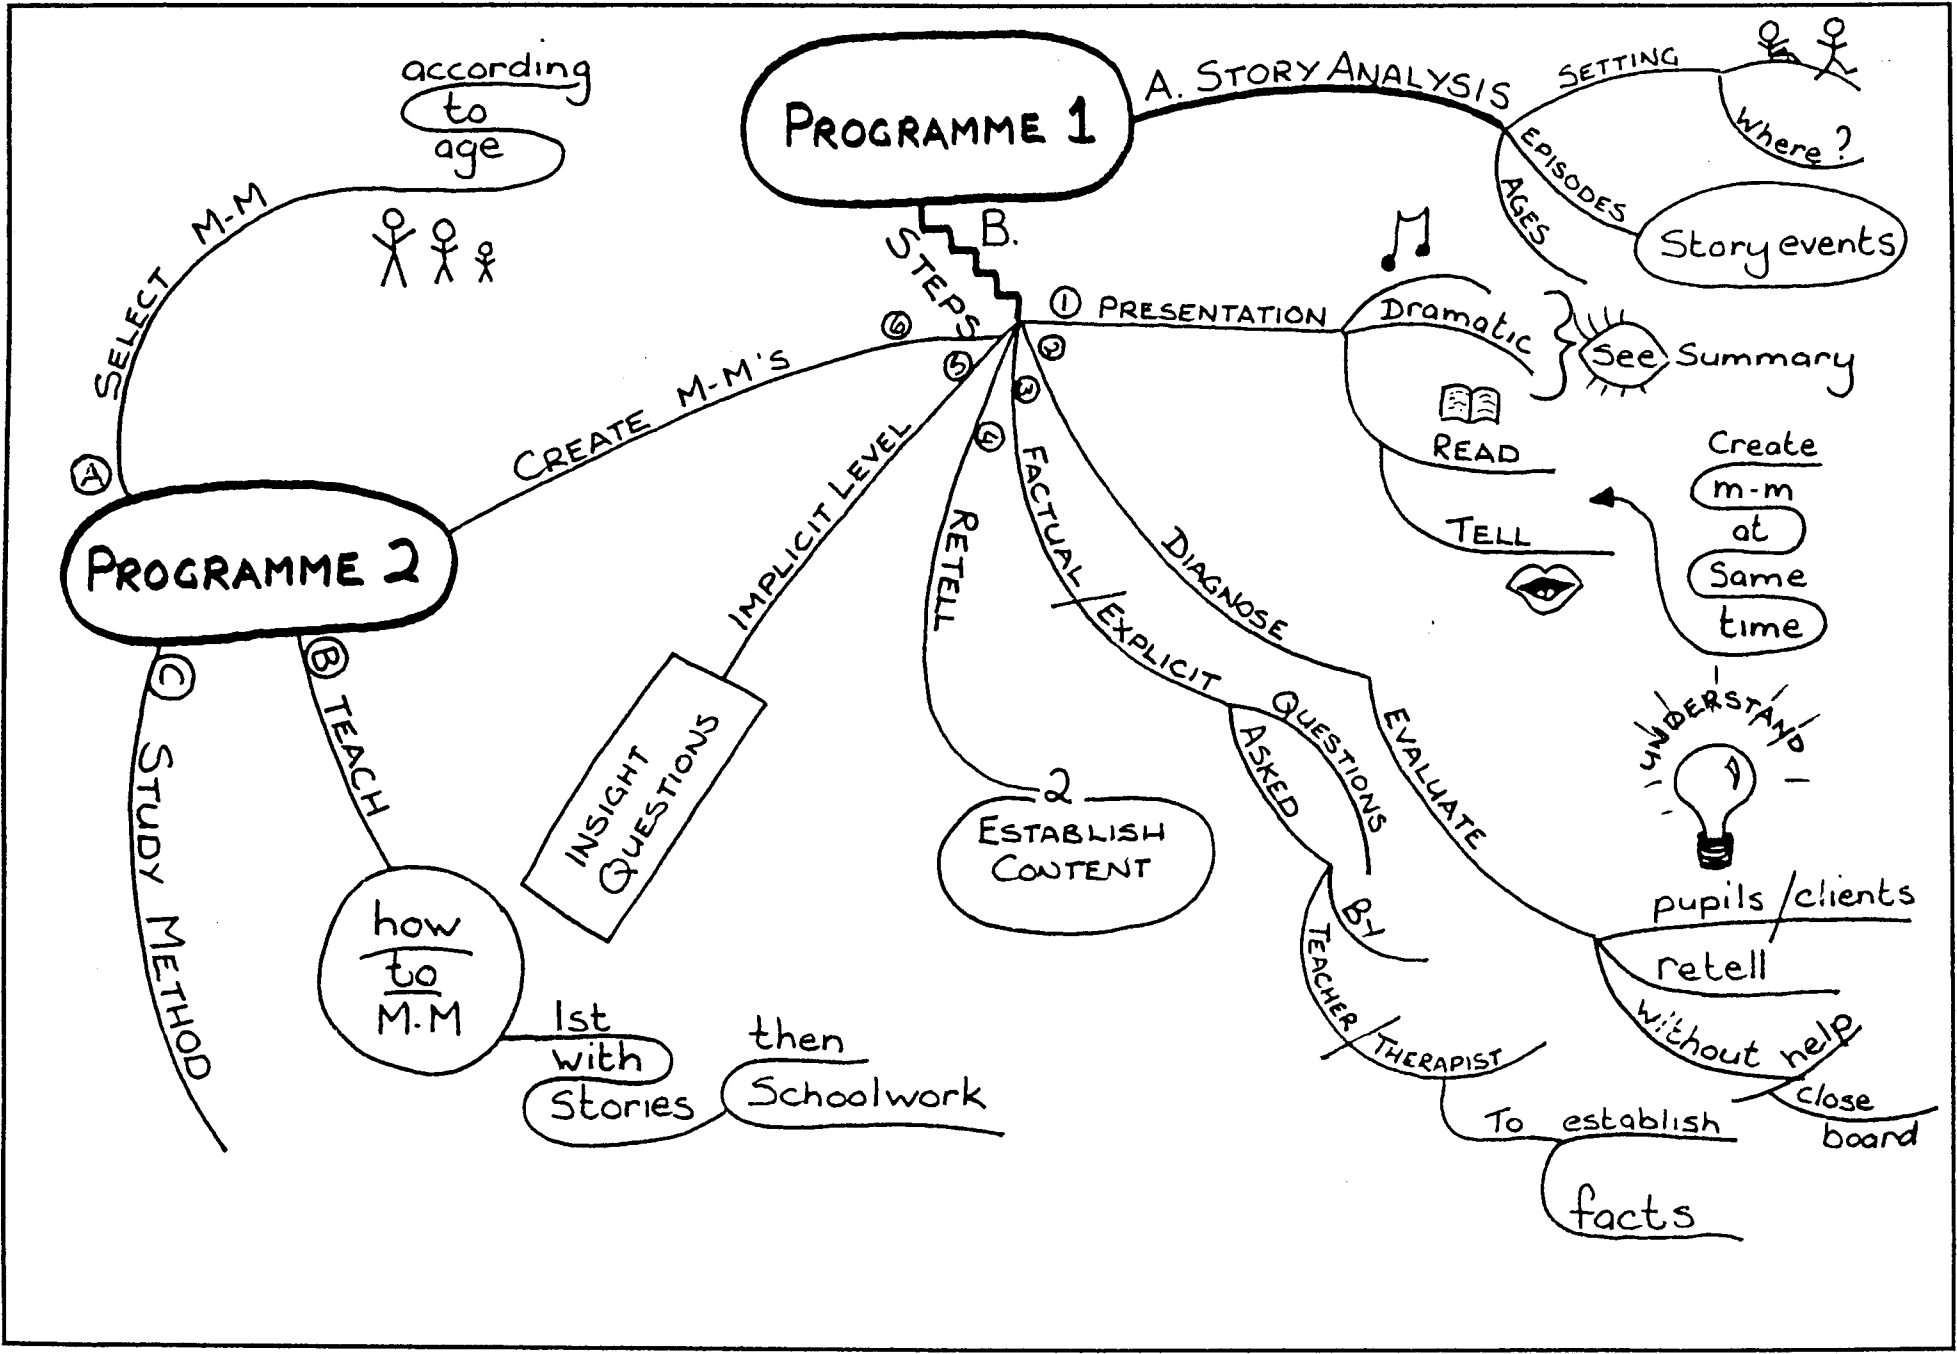 PROGRAMME 1
A. STORY ANALYSIS
SETTING
Where?
EPISODES
Story events
AGES
B.
STEPS
1 PRESENTATION
Dramatic
See Summary
READ
TELL
Create
m-m
at
Same
time
2
DIAGNOSE
EVALUATE
UNDERSTAND
pupils/clients
retell
without help
close
board
3
FACTUAL/EXPLICIT
QUESTIONS
ASKED
BY
TEACHER/THERAPIST
To establish
facts
4
RETELL
2
ESTABLISH
CONTENT
5
IMPLICIT LEVEL
INSIGHT
QUESTIONS
6
CREATE M-M'S
PROGRAMME 2
A
SELECT M-M
according
to
age
B TEACH
how
to
M.M
1st
with
Stories
then
Schoolwork
C STUDY METHOD